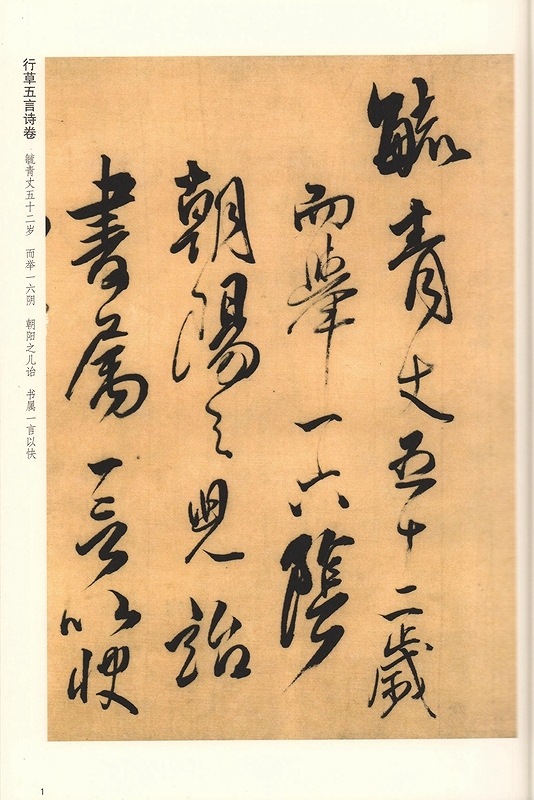 毓青丈五十二歲
而舉一六陰
朝陽之兒詒
書屬一言以快
行草五言诗卷
毓青丈五十二岁　而举一六阴　朝阳之儿诒　书属一言以快
1